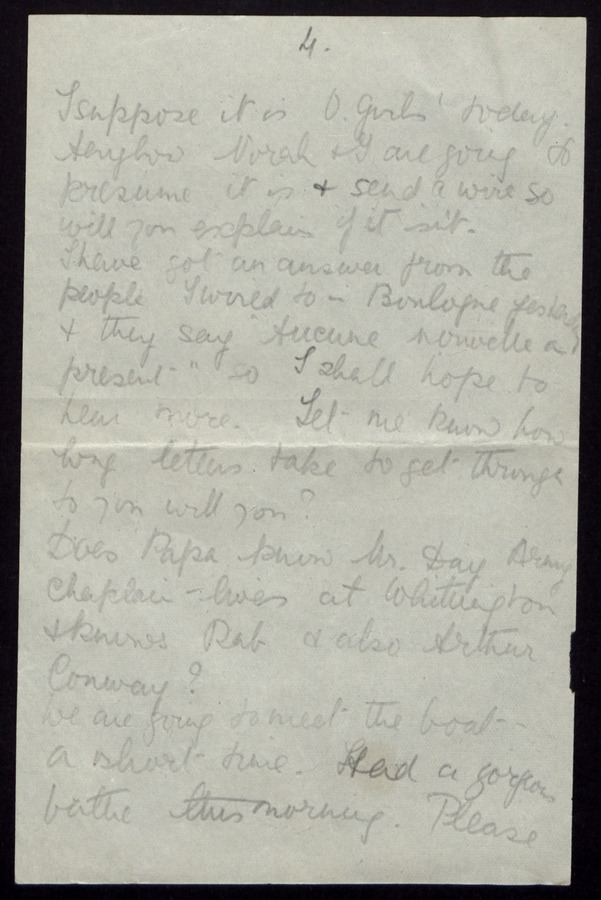 4.
I suppose it is O. Girls' today.
Anyhow Norah & I are going to
presume it is & send a wire so
will you explain if it isn't.
I have got an answer from the
people I wired to in Boulogne yesterday
& they say "Aucune nouvelle a
present" so I shall hope to
hear more. Let me know how
long letters take to get through
to you will you?
Does Papa know Mr. Day Army
Chaplain - lives at Whittington
& knows Rab & also Arthur
Conway?
We are going to meet the boat in
a short time. Had a gorgeous
bathe this morning. Please